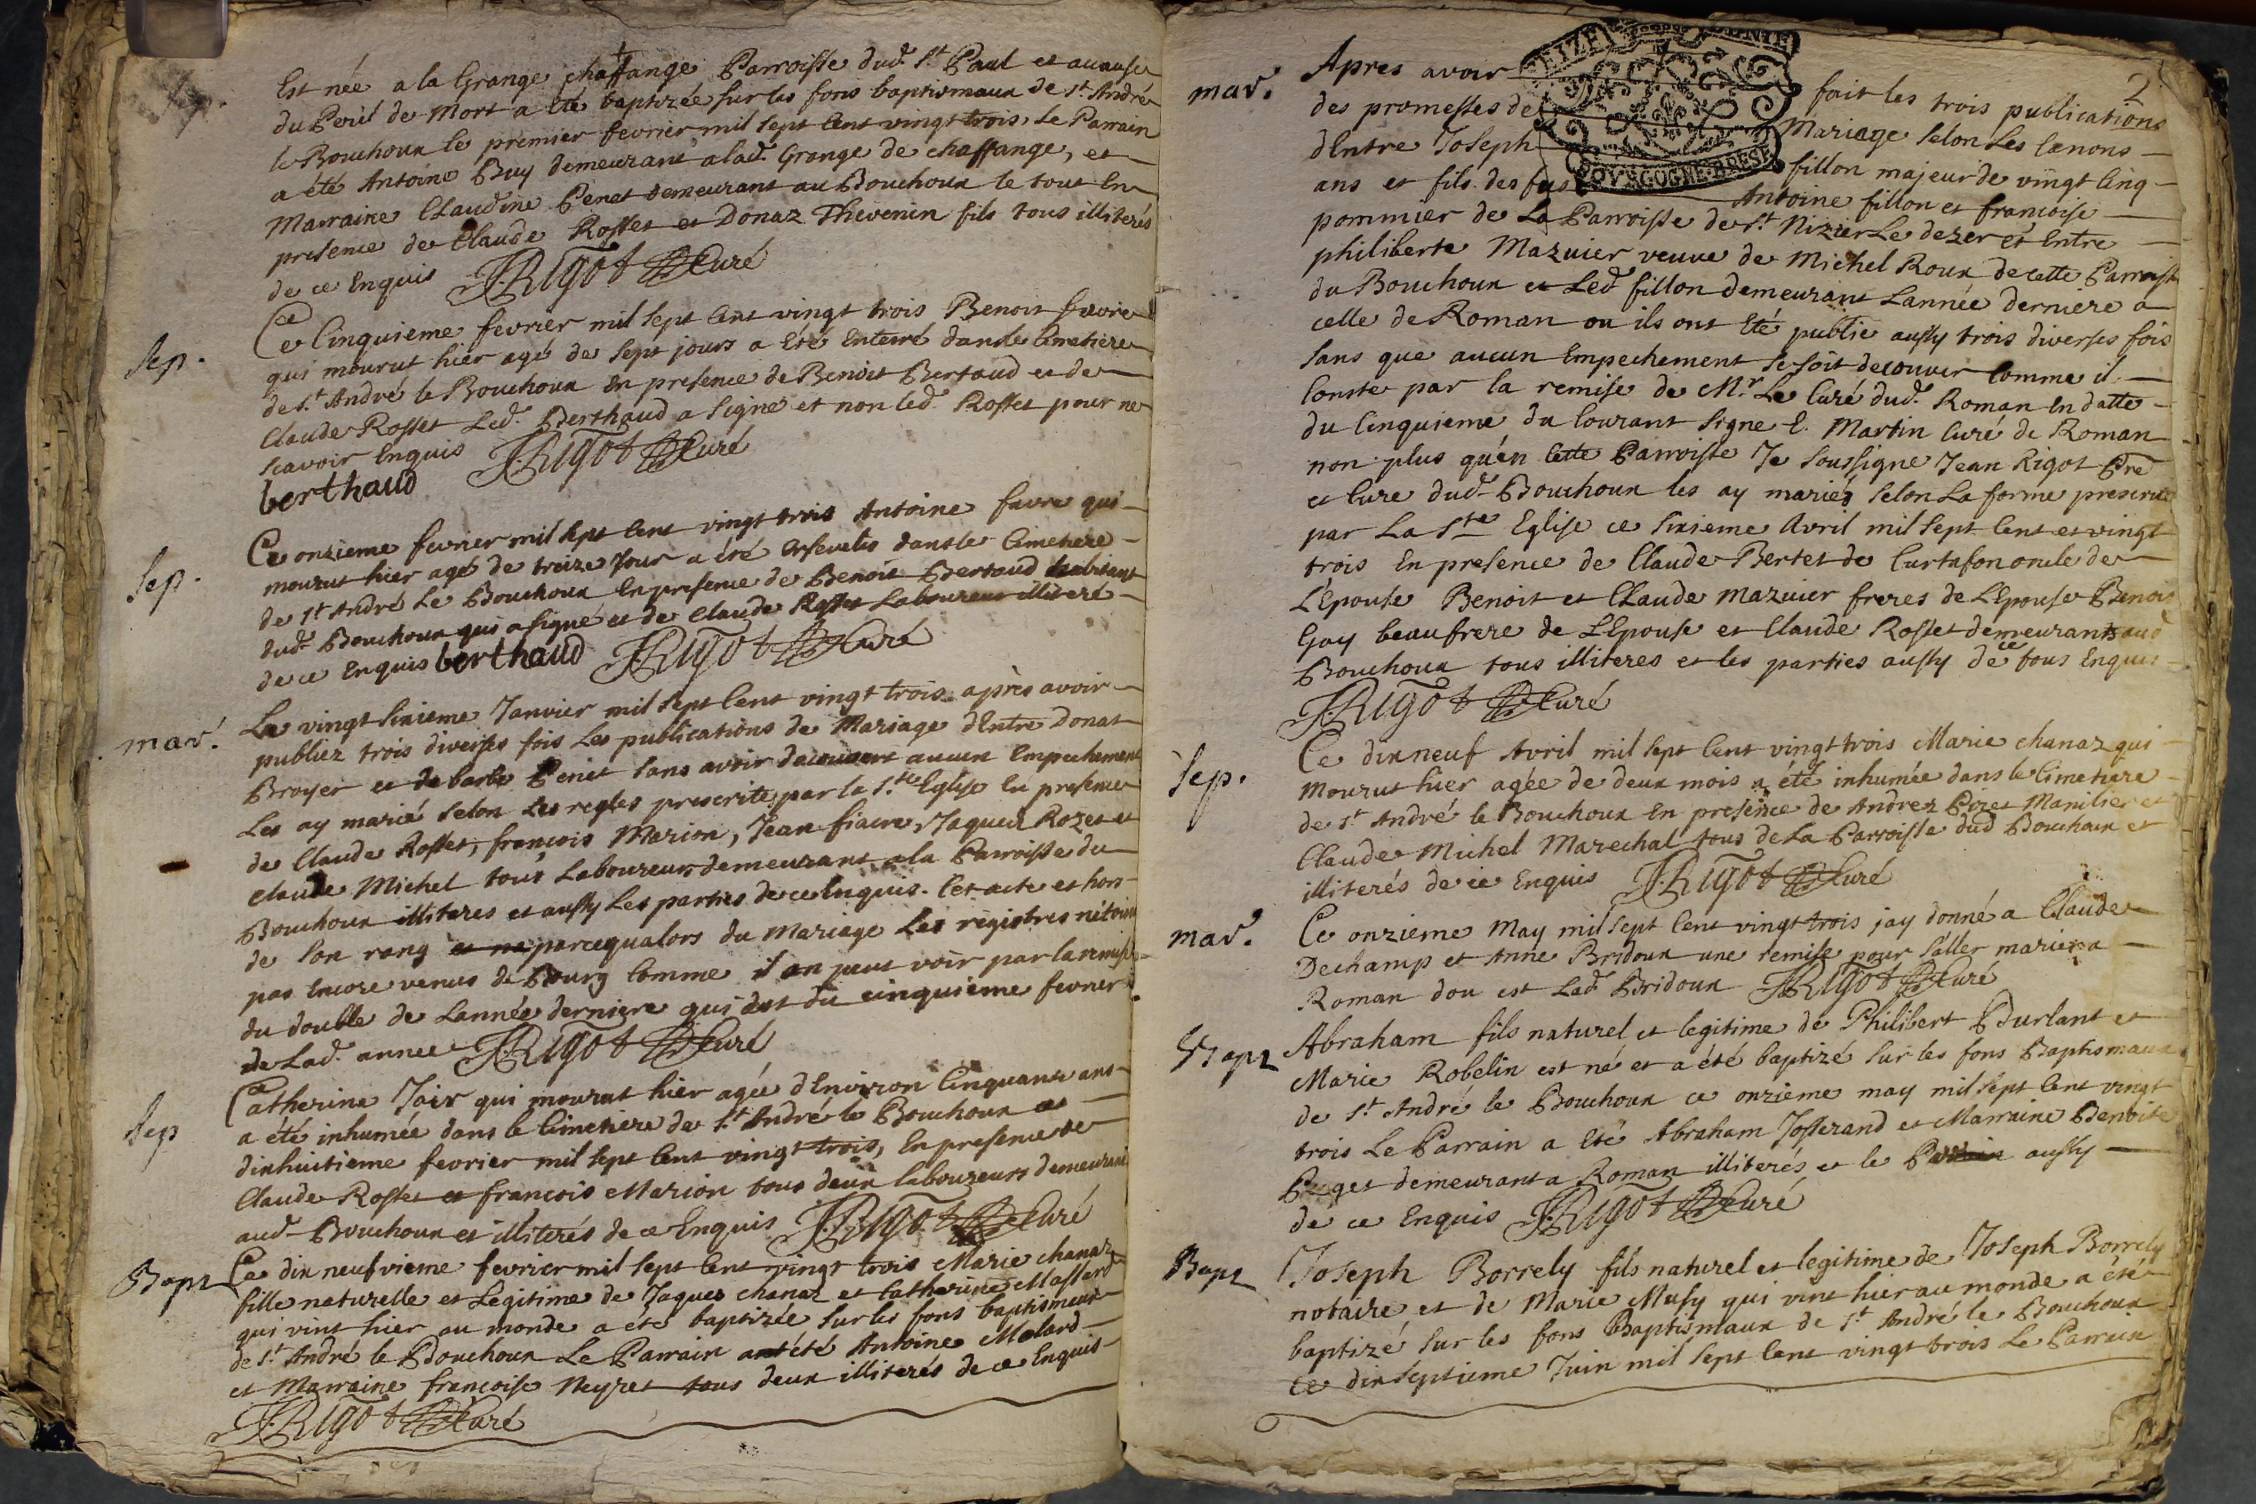 Est née a la Grange chaffange Parroisse dud. St Paul et acause
du Peril de Mort a été baptizée sur les fons baptismaux de St André
le Bouchoux le premier fevrier mil sept Cent vingt trois, Le Parrain
a été Antoine Buy demeurant a lad. Grange de chaffange, et
Marraine Claudine Penet demeurant au Bouchoux le tout En
presence de Claude Rosset et Donaz Thevenin fils tous illiterés
de ce Enquis J. RIGOT Curé
Sep.
Ce Cinquieme fevrier mil sept Cent vingt trois Benoit favre
qui mourut hier agé de sept jours a Eté Enterré dans le Cimetiere
de St André le Bouchoux En presence de Benoit Bertaud et de
Claude Rosset Led. Berthaud a Signé et non led. Rosset pour ne
scavoir Enquis J. RIGOT Curé
berthaud
Sep.
Ce onzieme fevrier mil sept Cent vingt trois Antoine favre qui
mourut hier agé de treize Jour a été Ensevelis dans le Cimetiere
de St André Le Bouchoux En presence de Benoit Bertaud habitant
dud. Bouchoux qui a signé et de Claude Rosset Laboureur illiteré
de ce Enquis berthaud J. RIGOT Curé
mar.
Le vingt Sixieme Janvier mil sept Cent vingt trois après avoir
publiez trois diverses fois Les publications de Mariage d'Entre Donat
Broyer et de barbe Peniet sans avoir decouvert aucun Empechement
Les ay marié selon Les regles prescrites par la Ste Eglise En presence
de Claude Rosset, françois Marion, Jean fiacre, Jaques Rozet et
Claude Michel tous Laboureurs demeurant a la Parroisse du
Bouchoux illiteres et aussy Les parties de ce Enquis. Cet acte est hors
de son rang et ne parcequalors du mariage Les registres nétoint
pas Encore venus de Bourg Comme il an peut voir par la remise
du double de Lannée derniere qui est du cinquieme fevrier
de Lad. annee J. RIGOT Curé
Sep
Catherine Jair qui mourut hier agée d'Environ Cinquante ans
a été inhumée dans le Cimetiere de St André le Bouchoux ce
dixhuitieme fevrier mil sept Cent vingt trois, En presence de
Claude Rosset et francois Marion tous deux laboureurs demeurant
aud. Bouchoux et illiterés de ce Enquis J. RIGOT Curé
Bapt
Ce dix neufvieme fevrier mil sept Cent vingt trois Marie chanaz
fille naturelle et Legitime de Jaques chanaz et Catherine Massard
qui vint hier au monde a été baptizée sur les fons baptismeux
de St André le Bouchoux Le Parrain ant été Antoine Molard
et Marraine francoise Neyret tous deux illiterés de ce Enquis
J. RIGOT Curé
2
BOURGOGNE BRESSE
mar.
Apres avoir fait les trois publications
des promesses de Mariage selon Les Canons
d'Entre Joseph fillon majeur de vingt Cinq
ans et fils des fus Antoine fillon et francoise
pommier de La Parroisse de St Nizier Le dezer et Entre
philiberte Mazuier veuve de Michel Roux de cette Parroisse
du Bouchoux et Led. fillon demeurant Lannée derniere a
celle de Roman ou ils ont Eté publié aussy trois diverses fois
sans que aucun Empechement se soit decouver Comme il
Conste par la remise de Mr. Le Curé dud. Roman En datte
du Cinquieme du Courant signe E. Martin Curé de Roman
non plus qu'én Cette Parroisse Je soussigne Jean Rigot Pre
et Cure dud. Bouchoux les ay mariés selon La forme prescrite
par La Ste Eglise ce Sixieme Avril mil sept Cent et vingt
trois En presence de Claude Bertet de Curtafon oncle de
L'Epouse Benoit et Claude Mazuier freres de L'Epouse Benoit
Gay beaufrere de L'Epouse et Claude Rosset demeurants aud
Bouchoux tous illiteres et les parties aussy de ce tous Enquis
J. RIGOT Curé
Sep.
Ce dix neuf Avril mil sept Cent vingt trois Marie chanaz qui
mourut hier agée de deux mois a été inhumée dans le Cimetiere
de St André le Bouchoux En presence de Andrez Pozet Manilier et
Claude Michel Marechal tous de La Parroisse dud Bouchoux et
illiterés de ce Enquis J. RIGOT Curé
mar.
Ce onzieme May mil sept Cent vingt trois jay donné a Claude
Dechamp et Anne Bridoux une remise pour s'aller marier a
Roman dou est Lad. Bridoux J. RIGOT Curé
Bapt
Abraham fils naturel et legitime de Philibert Burlant et
Marie Robelin est né et a été baptizé sur les fons Baptismaux
de St André le Bouchoux ce onzieme may mil sept Cent vingt
trois Le Parrain a Eté Abraham Josserand et Marraine Benoite
Puget demeurant a Roman illiterés et le aussy
de ce Enquis J. RIGOT Curé
Bapt
Joseph Borrely fils naturel et legitime de Joseph Borrely
notaire et de Marie Musy qui vint hier au monde a été
baptizé sur les fons Baptismaux de St André le Bouchoux
ce dixseptieme Juin mil sept Cent vingt trois Le Parrain